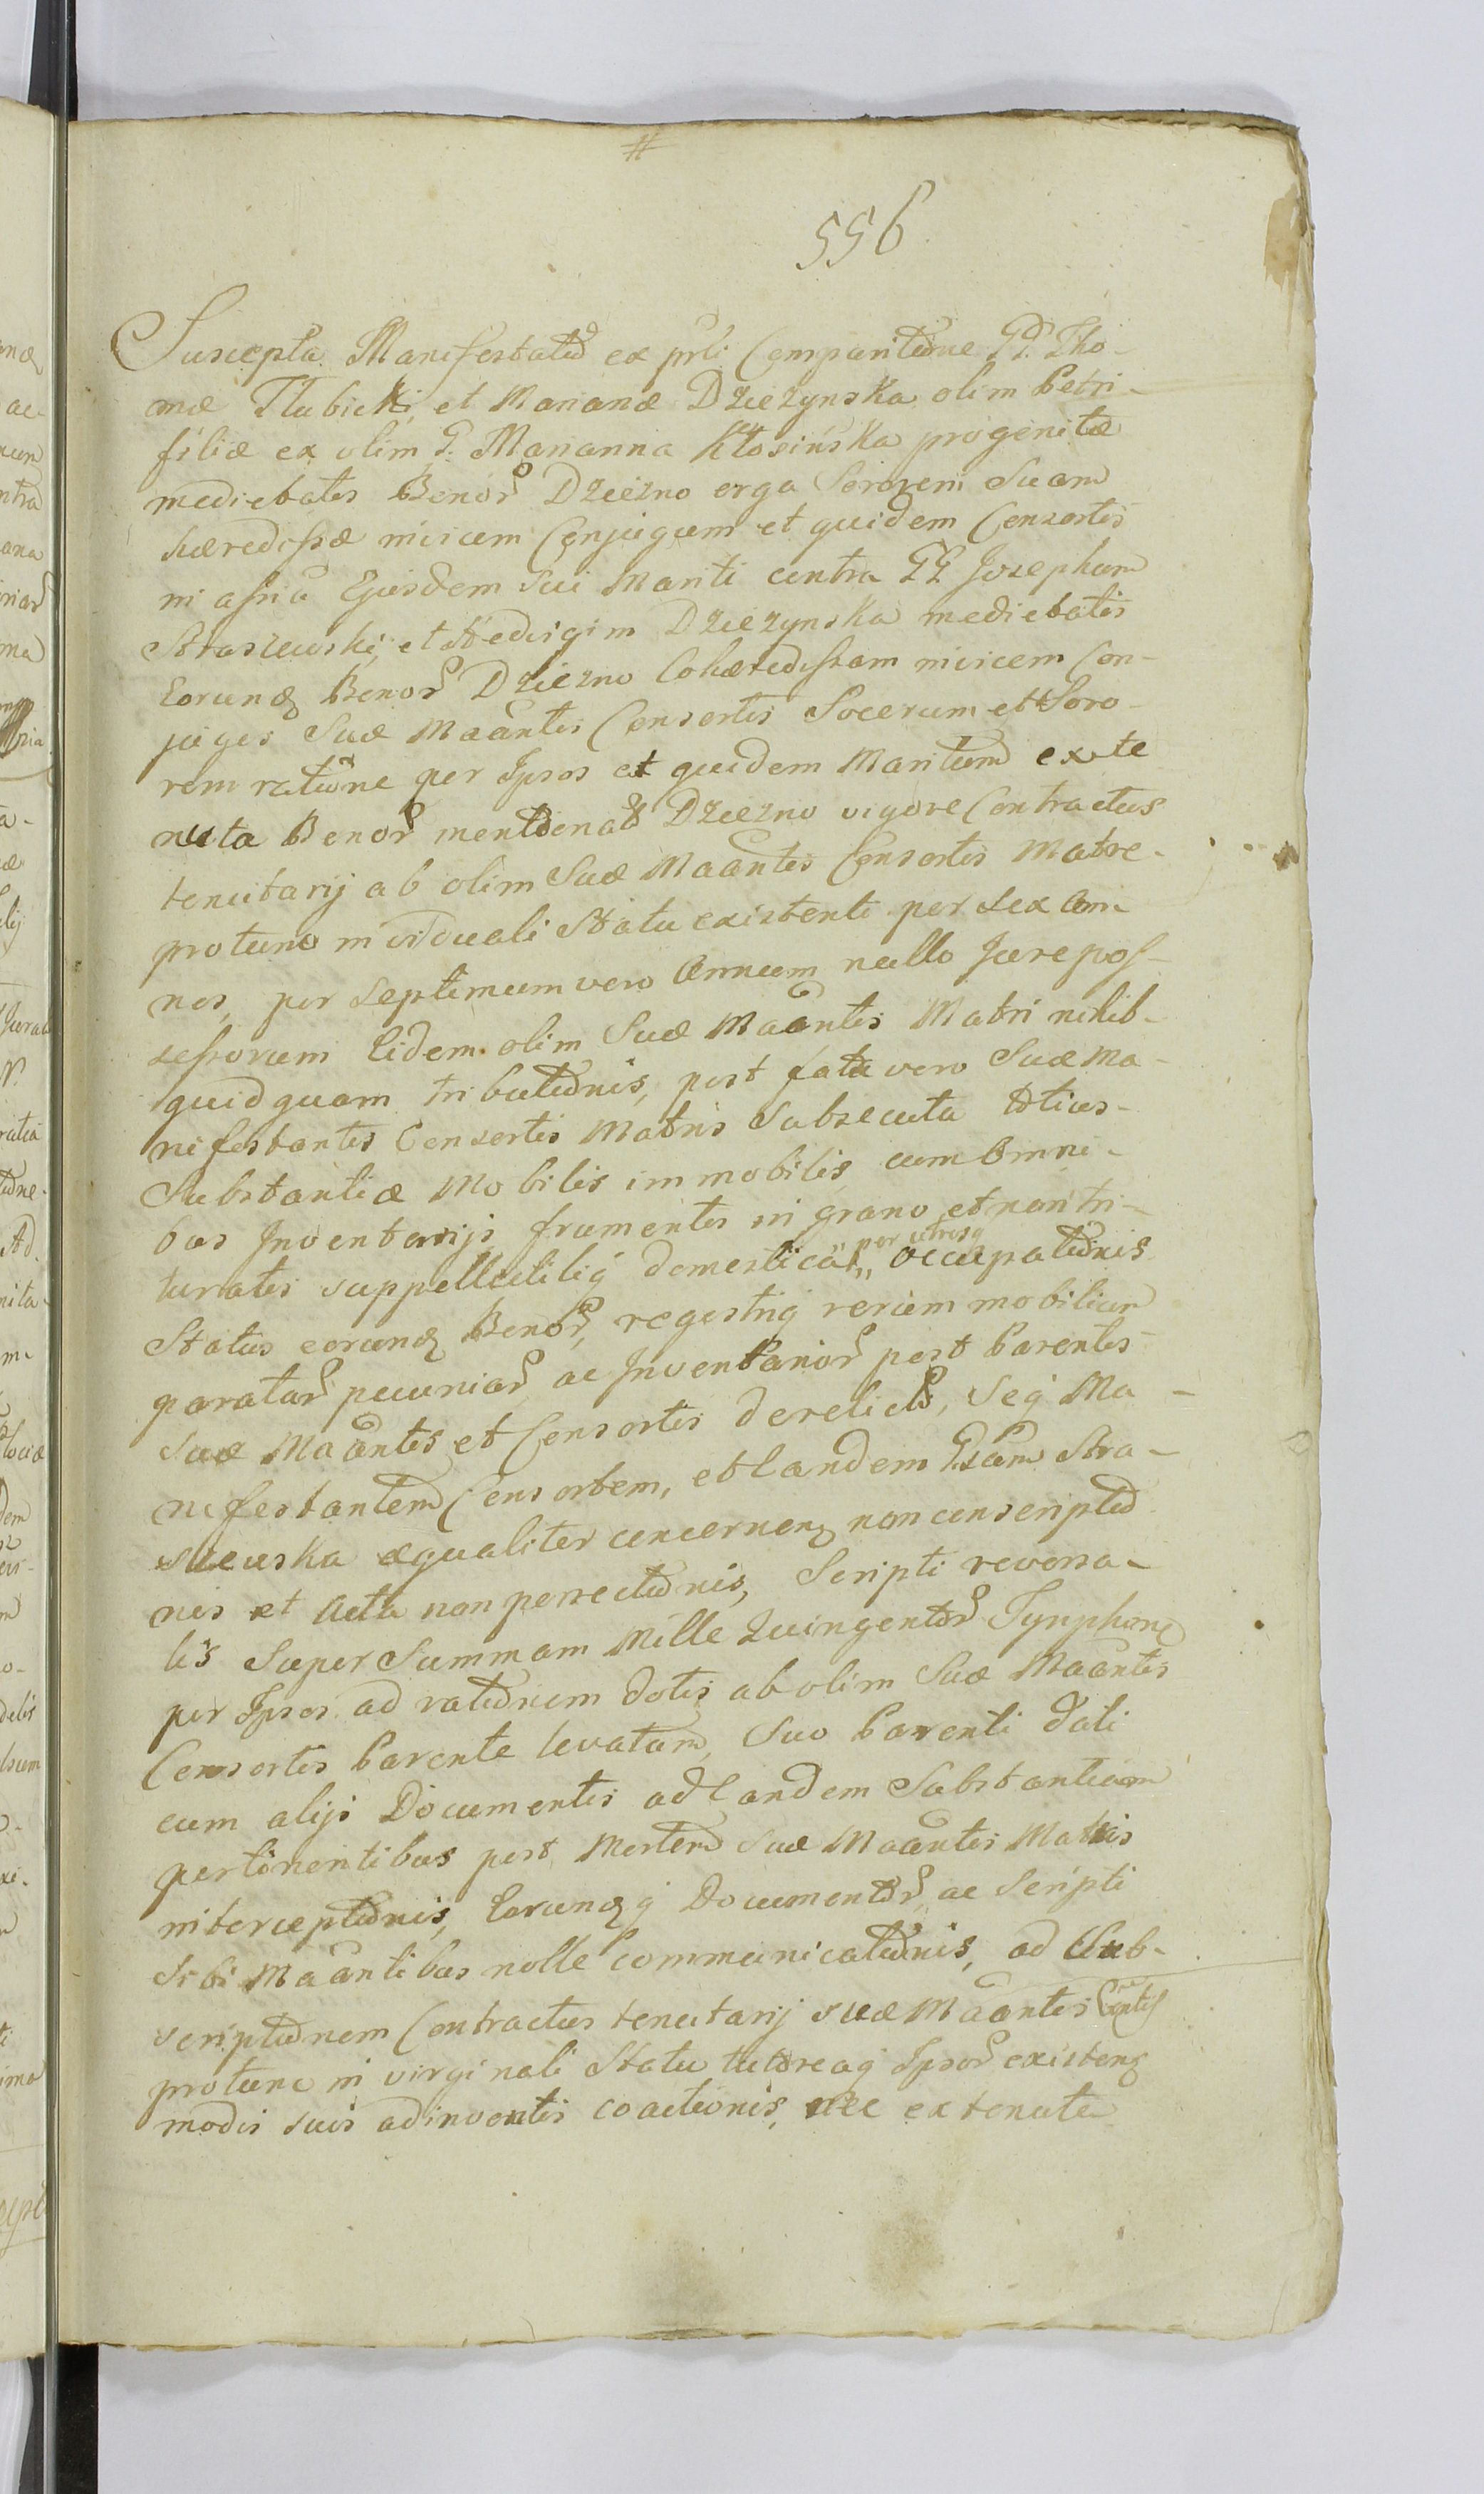 #
556
Suscepta Manifestatio ex prli Comparitione GG. Tho-
mæ Tłubicki, et Marianæ Dzieżynska olim Petri-
filiæ ex olim G. Marianna Kłosińska progenitæ
medietatis Bonor Dziezno erga Sororem Suam
hæredissæ invicem Conjugum et quidem Consortis
in assna Ejusdem Sui Mariti contra GG Josephum
Straszewski, et Hedvigim Dzieżynska medietatis
Eorundz Bonor Dziezno Cohæredissam invicem Con-
juges Suæ Maantis Consortis Socerum et Soro-
rem ratione per Ipsos et quidem Maritum exte
nuta Bonor mentionat Dziezno vigore Contractus
tenutarij ab olim Suæ Maantis Consortis Matre-
protunc in viduali Statu existente per sex An-
nos, per Septimum vero Annum nullo Jure pos-
sessorum Eidem olim Suæ Maantis Matri nihil-
quidquam tributionis, post fata vero Suæ Ma-
nifestantis Consortis Matris Subsecuta totius-
Substantiæ Mobilis immobilis cum Omni-
bus Inventarijs frumentis in grano, et non tri-
turatis suppellectiliq domesticar " per utrosq " occupationis
Status eorundz Bonor, regestriq rerum mobilium
paratar pecuniar ac Inventarior post Parentes
Suæ Maantis et Consortis derelict, Seq Ma-
nifestantem Consortem, et Eandem Gsam Stra-
szewska æqualiter concernenz non conscriptio
nis et Acta non porrectionis, Scripti reversa-
lis Super Summam Mille Quingentor Tynphonz
per Ipsos ad rationem dotis ab olim Suæ Maantis
Consortis Parente levatam, Suo Parenti dati
cum alijs Documentis ad Eandem Substantiam
pertinentibus post Mortem Suæ Maantis Matris
interceptionis, Eorundzq Documentor, ac Scripti
Sibi Maantibus nolle communicationis, ad Sub-
scriptionem Contractus tenutarij suæ Maantis Csortis
protunc in virginali Statu tutoreaq Ipsor existenz
modis suis adinventis coactionis, nec extenuta